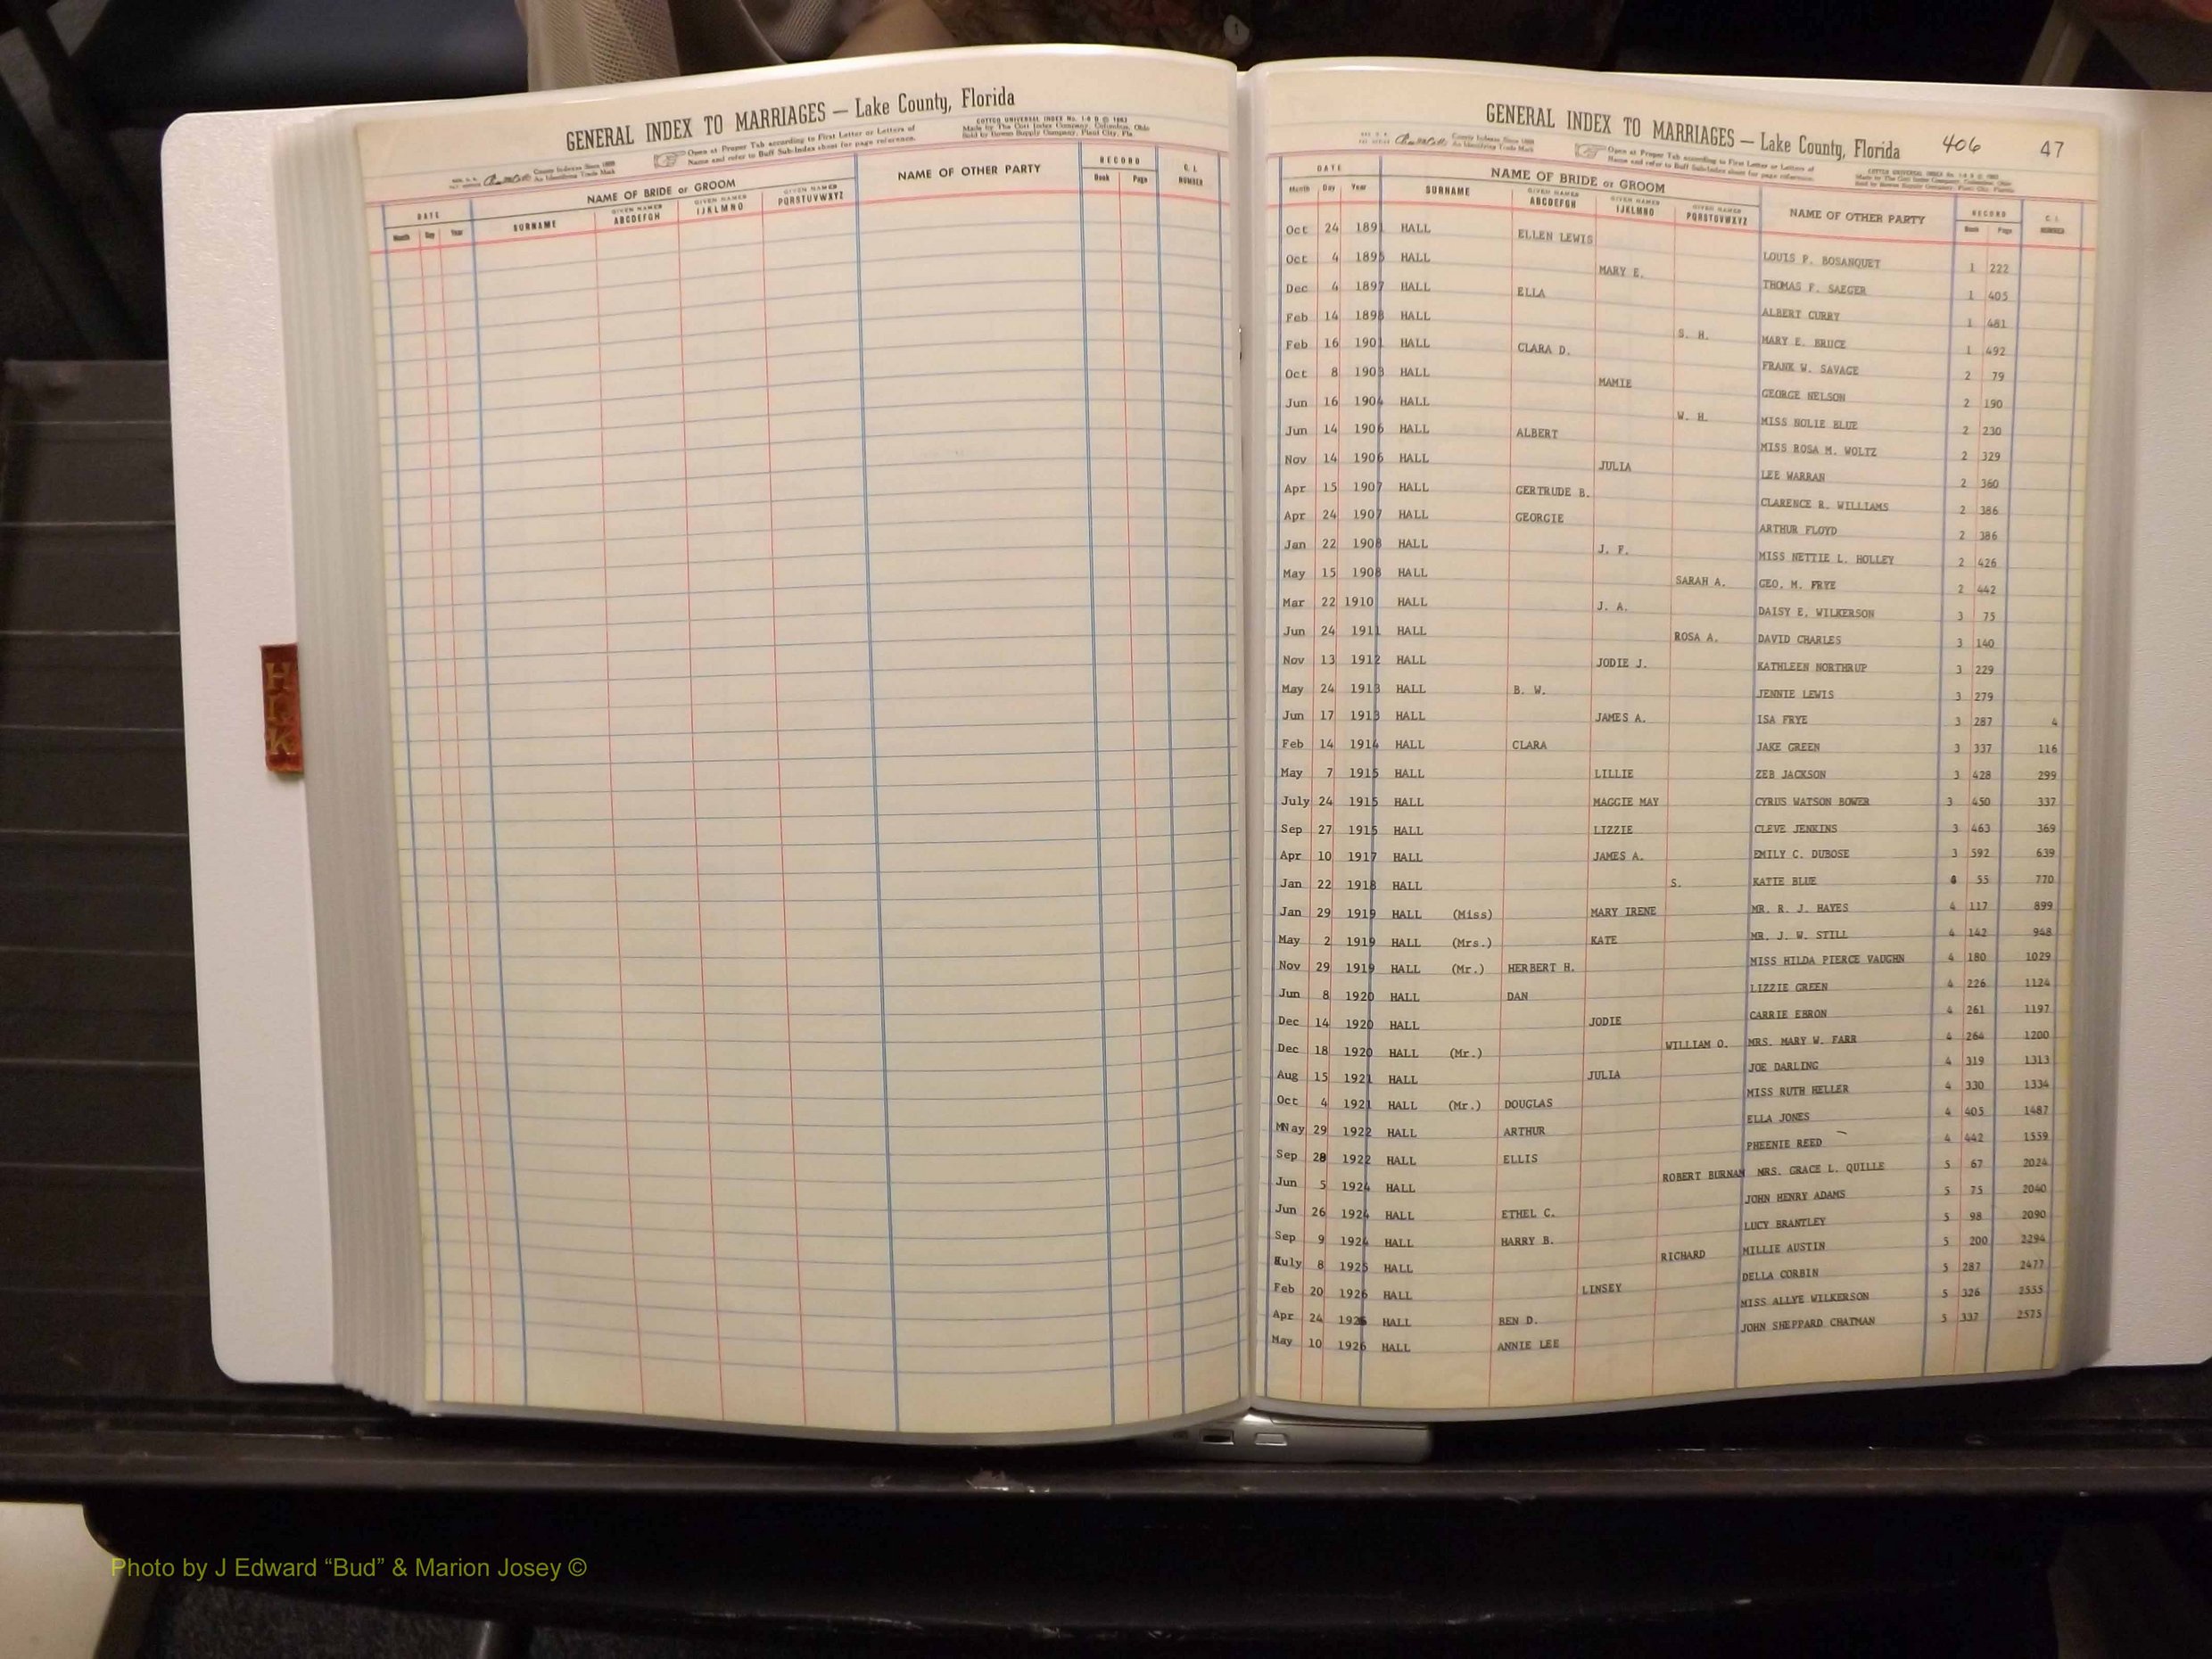 GENERAL INDEX TO MARRIAGES — Lake County, Florida
Open at Proper Tab according to First Letter or Letters of
Name and refer to Buff Sub-Index sheet for page reference.
DATE
Month Day Year
NAME OF BRIDE or GROOM
SURNAME
GIVEN NAMES ABCDEFGH
GIVEN NAMES IJKLMNO
GIVEN NAMES PQRSTUVWXYZ
NAME OF OTHER PARTY
RECORD
Book Page
C. L. NUMBER
GENERAL INDEX TO MARRIAGES — Lake County, Florida 406 47
Open at Proper Tab according to First Letter or Letters of
Name and refer to Buff Sub-Index sheet for page reference.
DATE
Month Day Year
NAME OF BRIDE or GROOM
SURNAME
GIVEN NAMES ABCDEFGH
GIVEN NAMES IJKLMNO
GIVEN NAMES PQRSTUVWXYZ
NAME OF OTHER PARTY
RECORD
Book Page
C. L. NUMBER
Oct 24 1891 HALL ELLEN LEWIS LOUIS P. BOSANQUET 1 222
Oct 4 1895 HALL MARY E. THOMAS F. SAEGER 1 405
Dec 4 1897 HALL ELLA ALBERT CURRY 1 481
Feb 14 1898 HALL S. H. MARY E. BRUCE 1 492
Feb 16 1901 HALL CLARA D. FRANK W. SAVAGE 2 79
Oct 8 1903 HALL MAMIE GEORGE NELSON 2 190
Jun 16 1904 HALL W. H. MISS NOLIE BLUE 2 230
Jun 14 1906 HALL ALBERT MISS ROSA M. WOLTZ 2 329
Nov 14 1906 HALL JULIA LEE WARRAN 2 360
Apr 15 1907 HALL GERTRUDE B. CLARENCE R. WILLIAMS 2 386
Apr 24 1907 HALL GEORGIE ARTHUR FLOYD 2 386
Jan 22 1908 HALL J. F. MISS NETTIE L. HOLLEY 2 426
May 15 1908 HALL SARAH A. GEO. M. FRYE 2 442
Mar 22 1910 HALL J. A. DAISY E. WILKERSON 3 75
Jun 24 1911 HALL ROSA A. DAVID CHARLES 3 140
Nov 13 1912 HALL JODIE J. KATHLEEN NORTHRUP 3 229
May 24 1913 HALL B. W. JENNIE LEWIS 3 279
Jun 17 1913 HALL JAMES A. ISA FRYE 3 287 4
Feb 14 1914 HALL CLARA JAKE GREEN 3 337 116
May 7 1915 HALL LILLIE ZEB JACKSON 3 428 299
July 24 1915 HALL MAGGIE MAY CYRUS WATSON BOWER 3 450 337
Sep 27 1915 HALL LIZZIE CLEVE JENKINS 3 463 369
Apr 10 1917 HALL JAMES A. EMILY C. DUBOSE 3 592 639
Jan 22 1918 HALL S. KATIE BLUE 4 55 770
Jan 29 1919 HALL (Miss) MARY IRENE MR. R. J. HAYES 4 117 899
May 2 1919 HALL (Mrs.) KATE MR. J. W. STILL 4 142 948
Nov 29 1919 HALL (Mr.) HERBERT H. MISS HILDA PIERCE VAUGHN 4 180 1029
Jun 8 1920 HALL DAN LIZZIE GREEN 4 226 1124
Dec 14 1920 HALL JODIE CARRIE EBRON 4 261 1197
Dec 18 1920 HALL (Mr.) WILLIAM O. MRS. MARY W. FARR 4 264 1200
Aug 15 1921 HALL JULIA JOE DARLING 4 319 1313
Oct 4 1921 HALL (Mr.) DOUGLAS MISS RUTH HELLER 4 330 1334
May 29 1922 HALL ARTHUR ELLA JONES 4 405 1487
Sep 28 1922 HALL ELLIS PHEENIE REED 4 442 1559
Jun 5 1924 HALL ROBERT BURNAM MRS. GRACE L. QUILLE 5 67 2024
Jun 26 1924 HALL ETHEL C. JOHN HENRY ADAMS 5 75 2040
Sep 9 1924 HALL HARRY B. LUCY BRANTLEY 5 98 2090
July 8 1925 HALL RICHARD MILLIE AUSTIN 5 200 2294
Feb 20 1926 HALL LINSEY DELLA CORBIN 5 287 2477
Apr 24 1926 HALL BEN D. MISS ALLYE WILKERSON 5 326 2555
May 10 1926 HALL ANNIE LEE JOHN SHEPPARD CHATMAN 5 337 2575
H
I.
K
Photo by J Edward “Bud” & Marion Josey ©